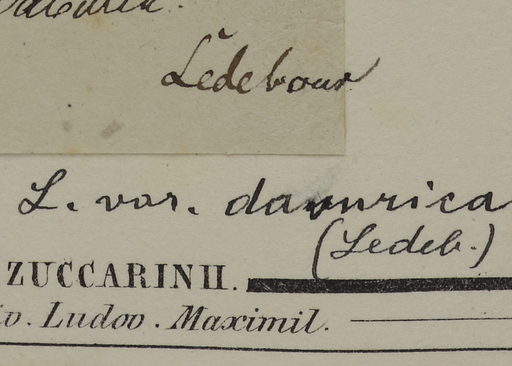 Ledebour
L. var. davurica
(Ledeb.)
ZUCCARINII.
iv. Ludov. Maximil.